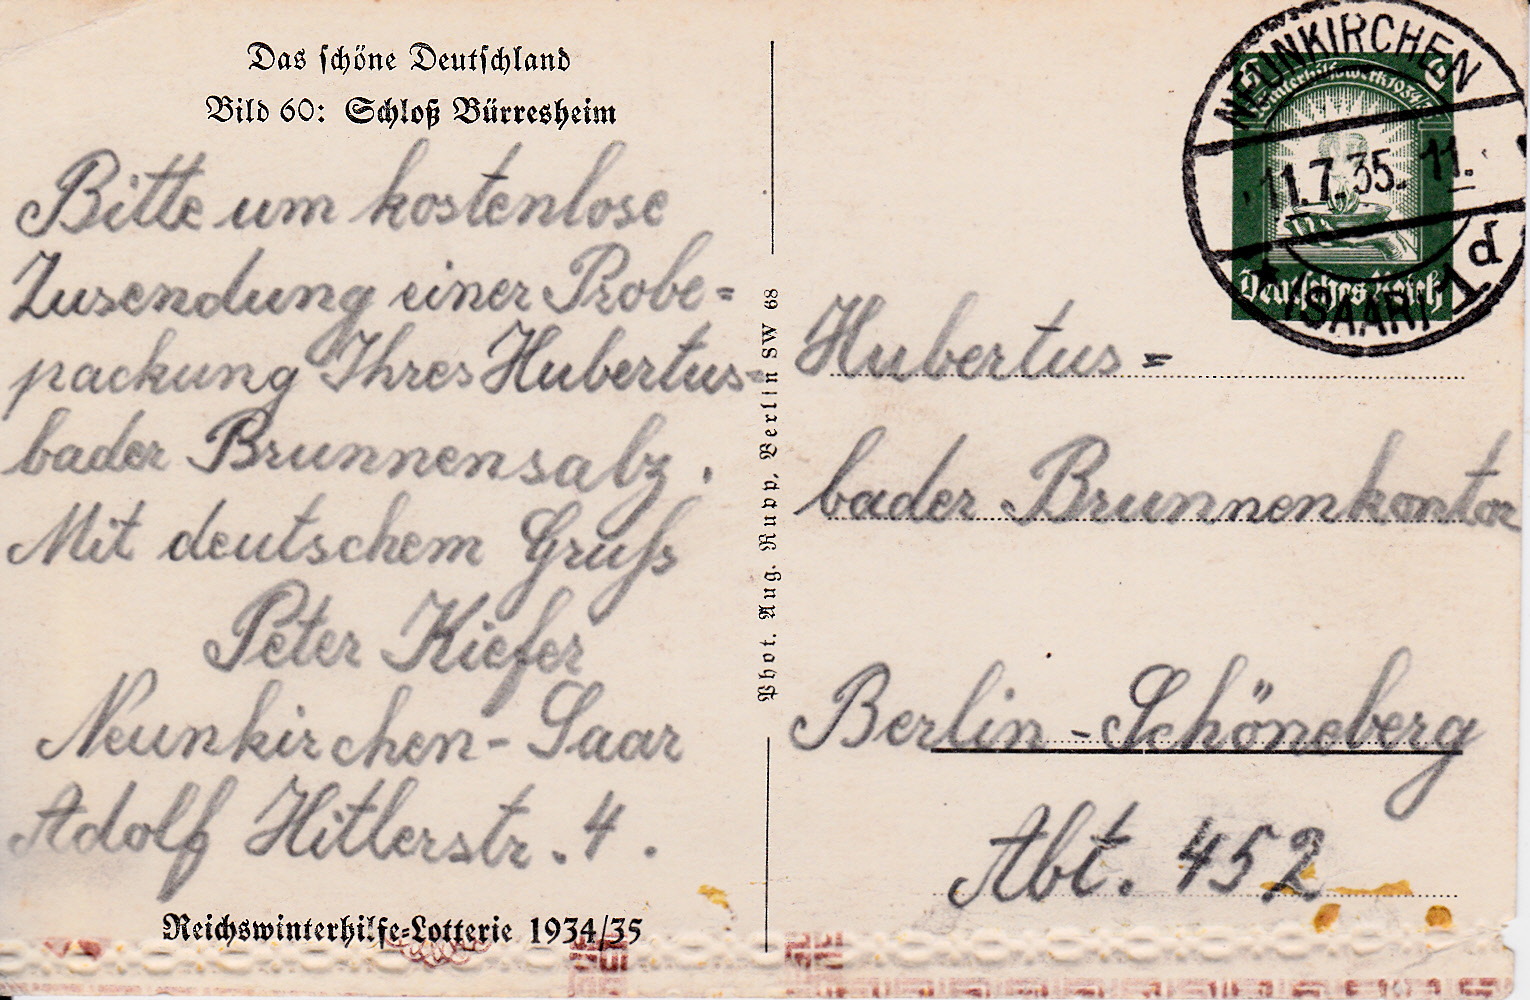 Das schöne Deutschland
Bild 60: Schloß Bürresheim
Bitte um kostenlose
Zusendung einer Probe=
packung Ihres Hubertus=
bader Brunnensalz.
Mit deutschem Gruß
Peter Kiefer
Neunkirchen-Saar
Adolf Hitlerstr. 4.
Reichswinterhilfe=Lotterie 1934/35
Phot. Aug. Rupp, Berlin SW 68
NEUNKIRCHEN
11.7.35. 11.
(SAAR) 1 d
Winterhilfswerk 1934/
Deutsches Reich
Hubertus=
bader Brunnenkontor
Berlin-Schöneberg
Abt. 452